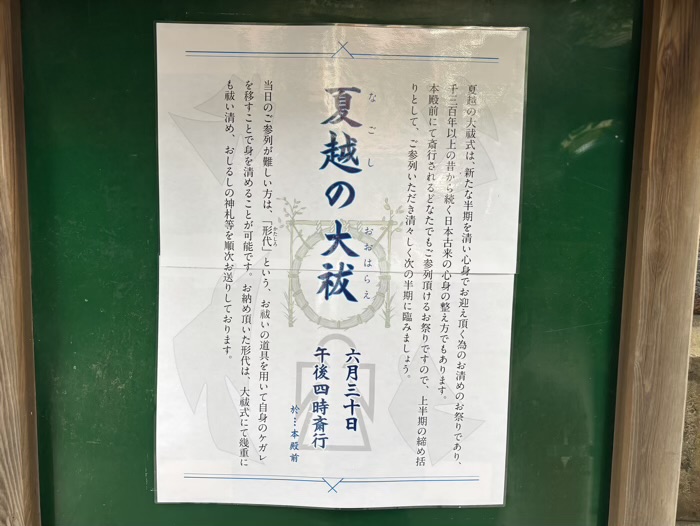 夏越の大祓式は、新たな半期を清い心身でお迎え頂く為のお清めのお祭りであり、
千三百年以上の昔から続く日本古来の心身の整え方でもあります。
本殿前にて斎行されるどなたでもご参列頂けるお祭りですので、上半期の締め括
りとして、ご参列いただき清々しく次の半期に臨みましょう。
なごし おおはらえ
夏越の大祓
六月三十日
午後四時斎行
於:本殿前
当日のご参列が難しい方は、「形代」という、お祓いの道具を用いて自身のケガレ
かたしろ
を移すことで身を清めることが可能です。お納め頂いた形代は、大祓式にて幾重に
も祓い清め、おしるしの神札等を順次お送りしております。